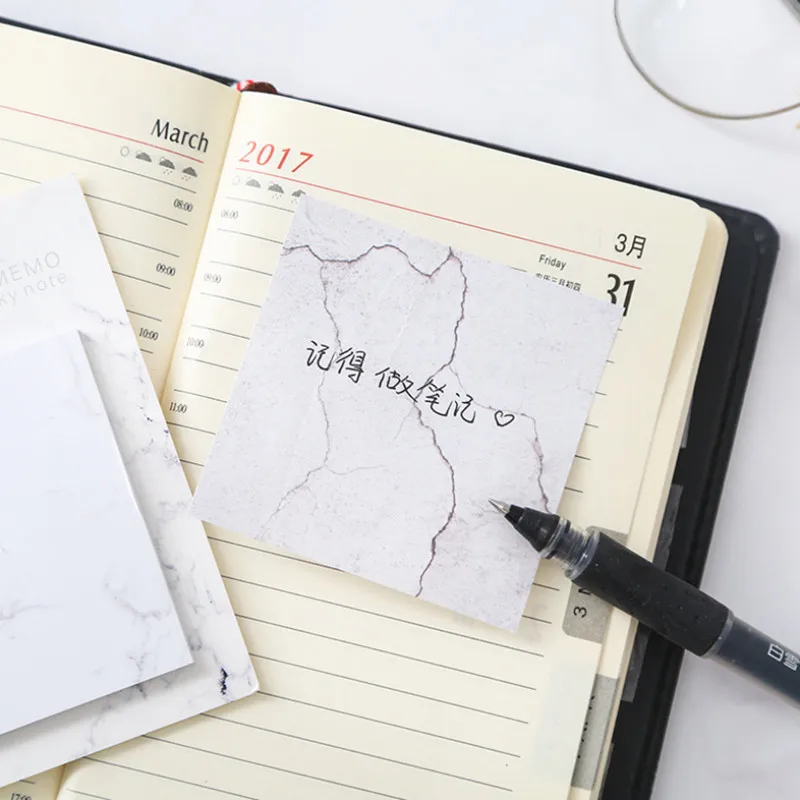 March
08:00
09:00
10:00
MEMO
ky note
2017
3月
08:00
Friday
31
农历三月初四
09:00
10:00
11:00
记得 做笔记 ♡
3 M
白雪
17:00